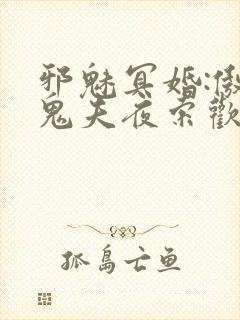 邪魅冥婚:傲
鬼夫夜索歡
孤島亡鱼